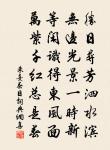 勝日尋芳泗水濱
無邊光景一時新
等閑識得東風面
萬紫千紅總是春
朱熹春日詞典網書